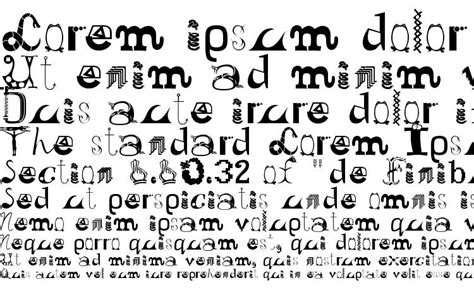 Lorem ipsum dolor
Ut enim ad minim v
Duis aute irure dolor i
The standard Lorem Ipsu
Section 1.10.32 of "de Finib
Sed ut perspiciatis unde omnis is
Nemo enim ipsam voluptatem quia v
Neque porro quisquam est, qui dolorem ipsum
Ut enim ad minima veniam, quis nostrum exercitation
Quis autem vel eum iure reprehenderit qui in ea voluptate velit esse qu